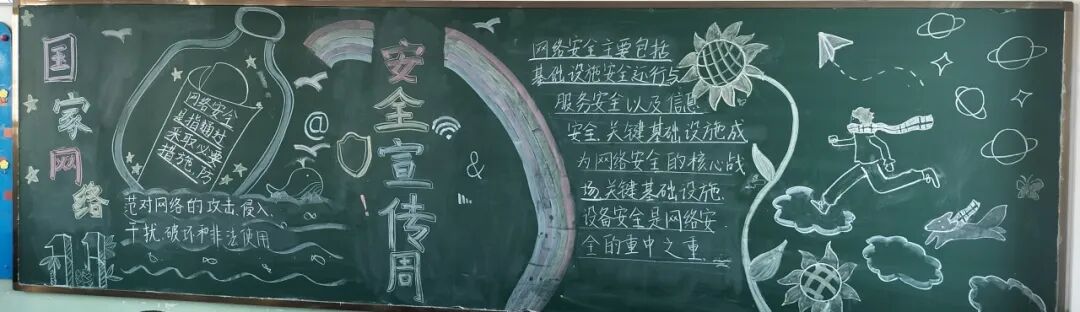 国家网络
安全宣传周
网络安全
是指通过
采取必要
措施,防
范对网络的攻击侵入、
干扰、破坏和非法使用
@
&
网络安全主要包括
基础设施安全运行点
服务安全以及信息
安全、关键基础设施成
为网络安全的核心战
场关键基础设施
设备安全是网络安
全的重中之重.